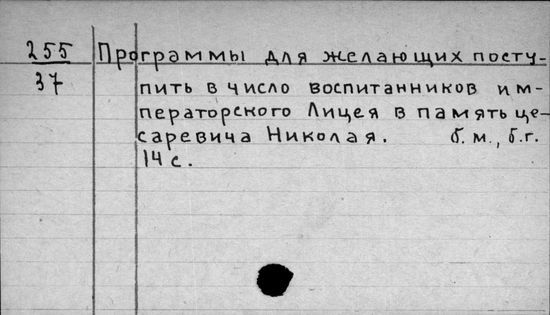 255 Программы для желающих посту-
37 пить в число воспитанников им-
ператорского Лицея в память це-
саревича Николая. б.м., б.г.
14 с.